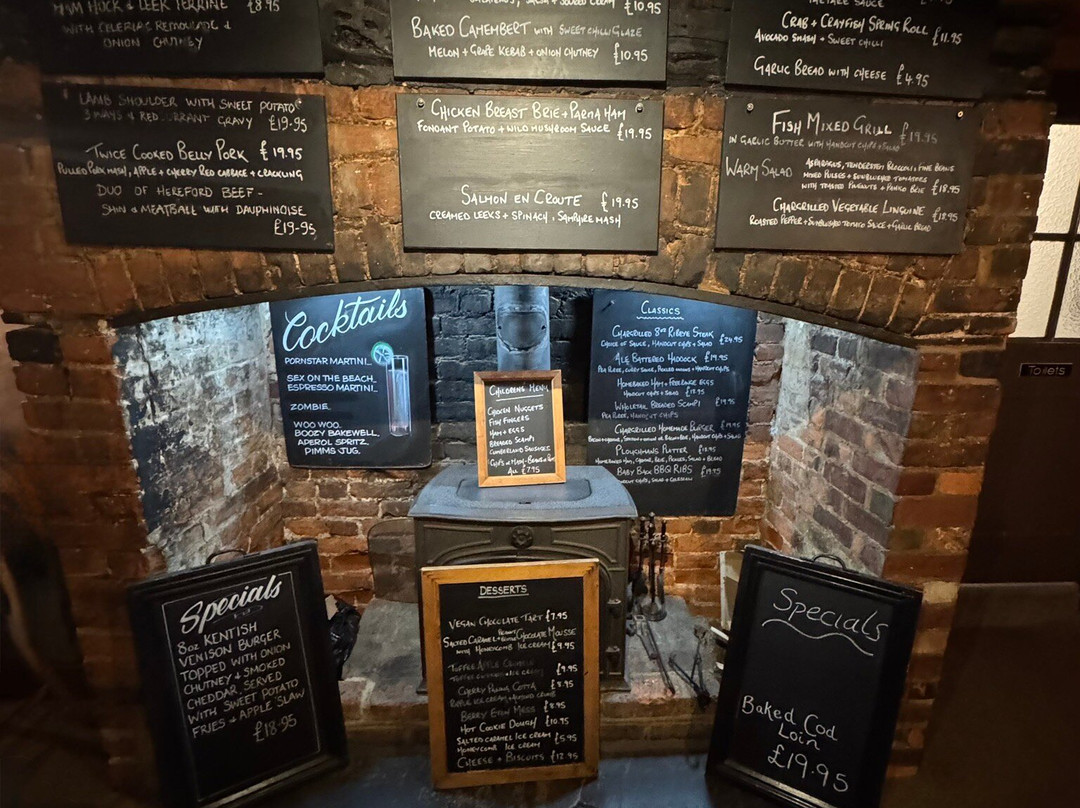 HAM HOCK & LEEK TERRINE £8.95
WITH CELERIAC REMOULADE &
ONION CHUTNEY
£10.95
BAKED CAMEMBERT WITH SWEET CHILLI GLAZE
MELON + GRAPE KEBAB + ONION CHUTNEY £10.95
TARTARE SAUCE
CRAB + CRAYFISH SPRING ROLL
AVOCADO SMASH + SWEET CHILLI £11.95
GARLIC BREAD WITH CHEESE £4.95
LAMB SHOULDER WITH SWEET POTATO
3 WAYS & REDCURRANT GRAVY £19.95
TWICE COOKED BELLY PORK £19.95
PULLED PORK MASH, APPLE + CHERRY RED CABBAGE + CRACKLING
DUO OF HEREFORD BEEF -
SHIN & MEATBALL WITH DAUPHINOISE
£19-95
CHICKEN BREAST BRIE + PARMA HAM
FONDANT POTATO + WILD MUSHROOM SAUCE £19.95
SALMON EN CROUTE £19.95
CREAMED LEEKS + SPINACH, SAMPHIRE MASH
FISH MIXED GRILL £19.95
IN GARLIC BUTTER WITH HANDCUT CHIPS + SALAD
WARM SALAD ASPARAGUS, TENDERSTEM BROCCOLI, FINE BEANS
MIXED PULSES + SUNBLUSHED TOMATOES
WITH TOASTED PEANUTS + PANKO BRIE £18.95
CHARGRILLED VEGETABLE LINGUINE £18.95
ROASTED PEPPER + SUNBLUSHED TOMATO SAUCE + GARLIC BREAD
Toilets
Cocktails
PORNSTAR MARTINI
SEX ON THE BEACH
ESPRESSO MARTINI
ZOMBIE
WOO WOO
BOOZY BAKEWELL
APEROL SPRITZ
PIMMS JUG
CHILDRENS MENU
CHICKEN NUGGETS
FISH FINGERS
HAM + EGGS
BREADED SCAMPI
CUMBERLAND SAUSAGES
ALL £7.95
CLASSICS
CHARGRILLED 8oz RIBEYE STEAK £24.95
CHOICE OF SAUCE, HANDCUT CHIPS + SALAD
ALE BATTERED HADDOCK £19.95
PEA PUREE, CURRY SAUCE, PICKLED ONIONS + HANDCUT CHIPS
HOMEBAKED HAM + FREE RANGE EGGS
HANDCUT CHIPS + SALAD
WHOLETAIL BREADED SCAMPI £19.95
PEA PUREE, HANDCUT CHIPS
CHARGRILLED HOMEMADE BURGER £19.95
PLOUGHMANS PLATTER
BABY BACK BBQ RIBS £19.95
HANDCUT CHIPS, SALAD + COLESLAW
Specials
8oz KENTISH
VENISON BURGER
TOPPED WITH ONION
CHUTNEY & SMOKED
CHEDDAR, SERVED
WITH SWEET POTATO
FRIES & APPLE SLAW
£18.95
DESSERTS
VEGAN CHOCOLATE TART £7.95
SALTED CARAMEL + PEANUT BUTTER CHOCOLATE MOUSSE
WITH HONEYCOMB ICE CREAM £9.95
TOFFEE APPLE CRUMBLE £9.95
CHERRY PANNA COTTA £8.95
BERRY ETON MESS £8.95
HOT COOKIE DOUGH £10.95
SALTED CARAMEL ICE CREAM £5.95
HONEYCOMB ICE CREAM
CHEESE + BISCUITS £12.95
Specials
Baked Cod
Loin
£19.95